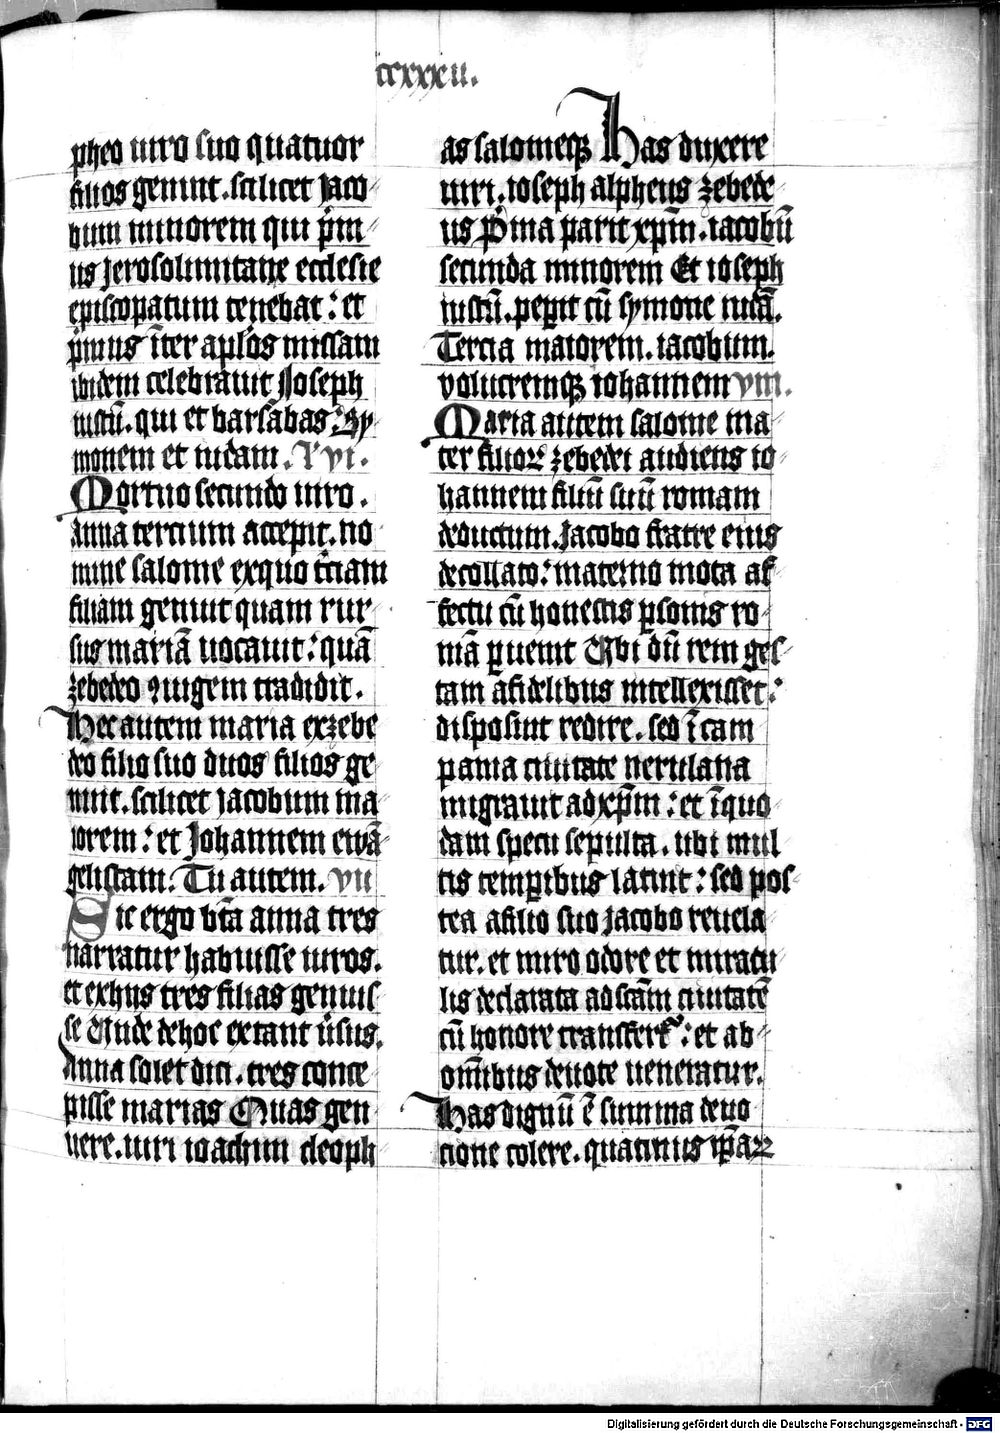 ccxxxii.
pheo uiro suo quatuor
filios genuit. scilicet Jaco-
bum minorem qui p̄m-
us Jerosolimitane ecclesie
episcopatum tenebat: et
p̄mus īter apl̄os missam
ibidem celebrauit Joseph
iustū. qui et barsabas: Sy-
monem et iudam. L' vi.
Mortuo secundo uiro.
anna tercium accepit. no-
mine salome exquo t̄ciam
filiam genuit quam rur-
sus mariā uocauit: quā
zebedeo ꝯiugem tradidit.
Hec autem maria exzebe
deo filio suo duos filios ge
nuit. scilicet Jacobum ma-
iorem: et Johannem ewā-
gelistam. Tu autem. vii
Sic ergo bt̄a anna tres
narratur habuisse uiros.
et exhiis tres filias genuis-
se Unde dehoc extant ūsus.
Anna solet dici. tres conce-
pisse marias Quas gen-
uere. uiri ioachim cleoph
as salomeqꝫ Has duxere
uiri. ioseph alpheus zebede-
us P̄ma parit xp̄m. iacobū
secunda minorem Et ioseph
iustū. peꝑit cū symone iudā.
Tercia maiorem. iacobum.
volucremqꝫ iohannem viii.
Maria autem salome ma-
ter filioꝝ zebedei audiens io-
hannem filiū suū romam
deductum. Jacobo fratre eius
decollato: materno mota af-
fectu cū honestis ꝑsonis ro-
mā ꝑuenit Ubi dū rem ges-
tam afidelibus intellexisset:
disposuit redire. sed ī cam
pania ciuitate uerulana
migrauit adxp̄m: et īquo-
dam specu sepulta. ubi mul-
tis temꝑibus latuit: sed pos-
tea afilio suo Jacobo reuela-
tur. et miro odore et miracu-
lis declarata ad sc̄am ciuitatē
cū honore transfert᷑: et ab-
om̄ibus deuote ueneratur.
Has dignū ē summa deuo-
cione colere. quatinus ip̄aꝝ
Digitalisierung gefördert durch die Deutsche Forschungsgemeinschaft - DFG